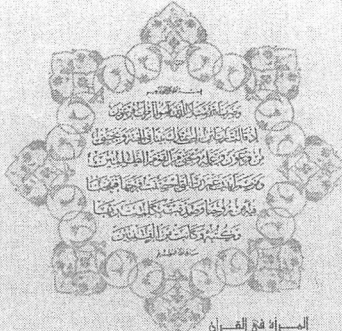 بسم الله الرحمن الرحيم
وضرب الله مثلا للذين آمنوا امرأة فرعون
إذ قالت رب ابن لي عندك بيتا في الجنة ونجني
من فرعون وعمله ونجني من القوم الظالمين
ومريم ابنت عمران التي أحصنت فرجها فنفخنا
فيه من روحنا وصدقت بكلمات ربها
وكتبه وكانت من القانتين
صدق الله العظيم
المرأة في القرآن